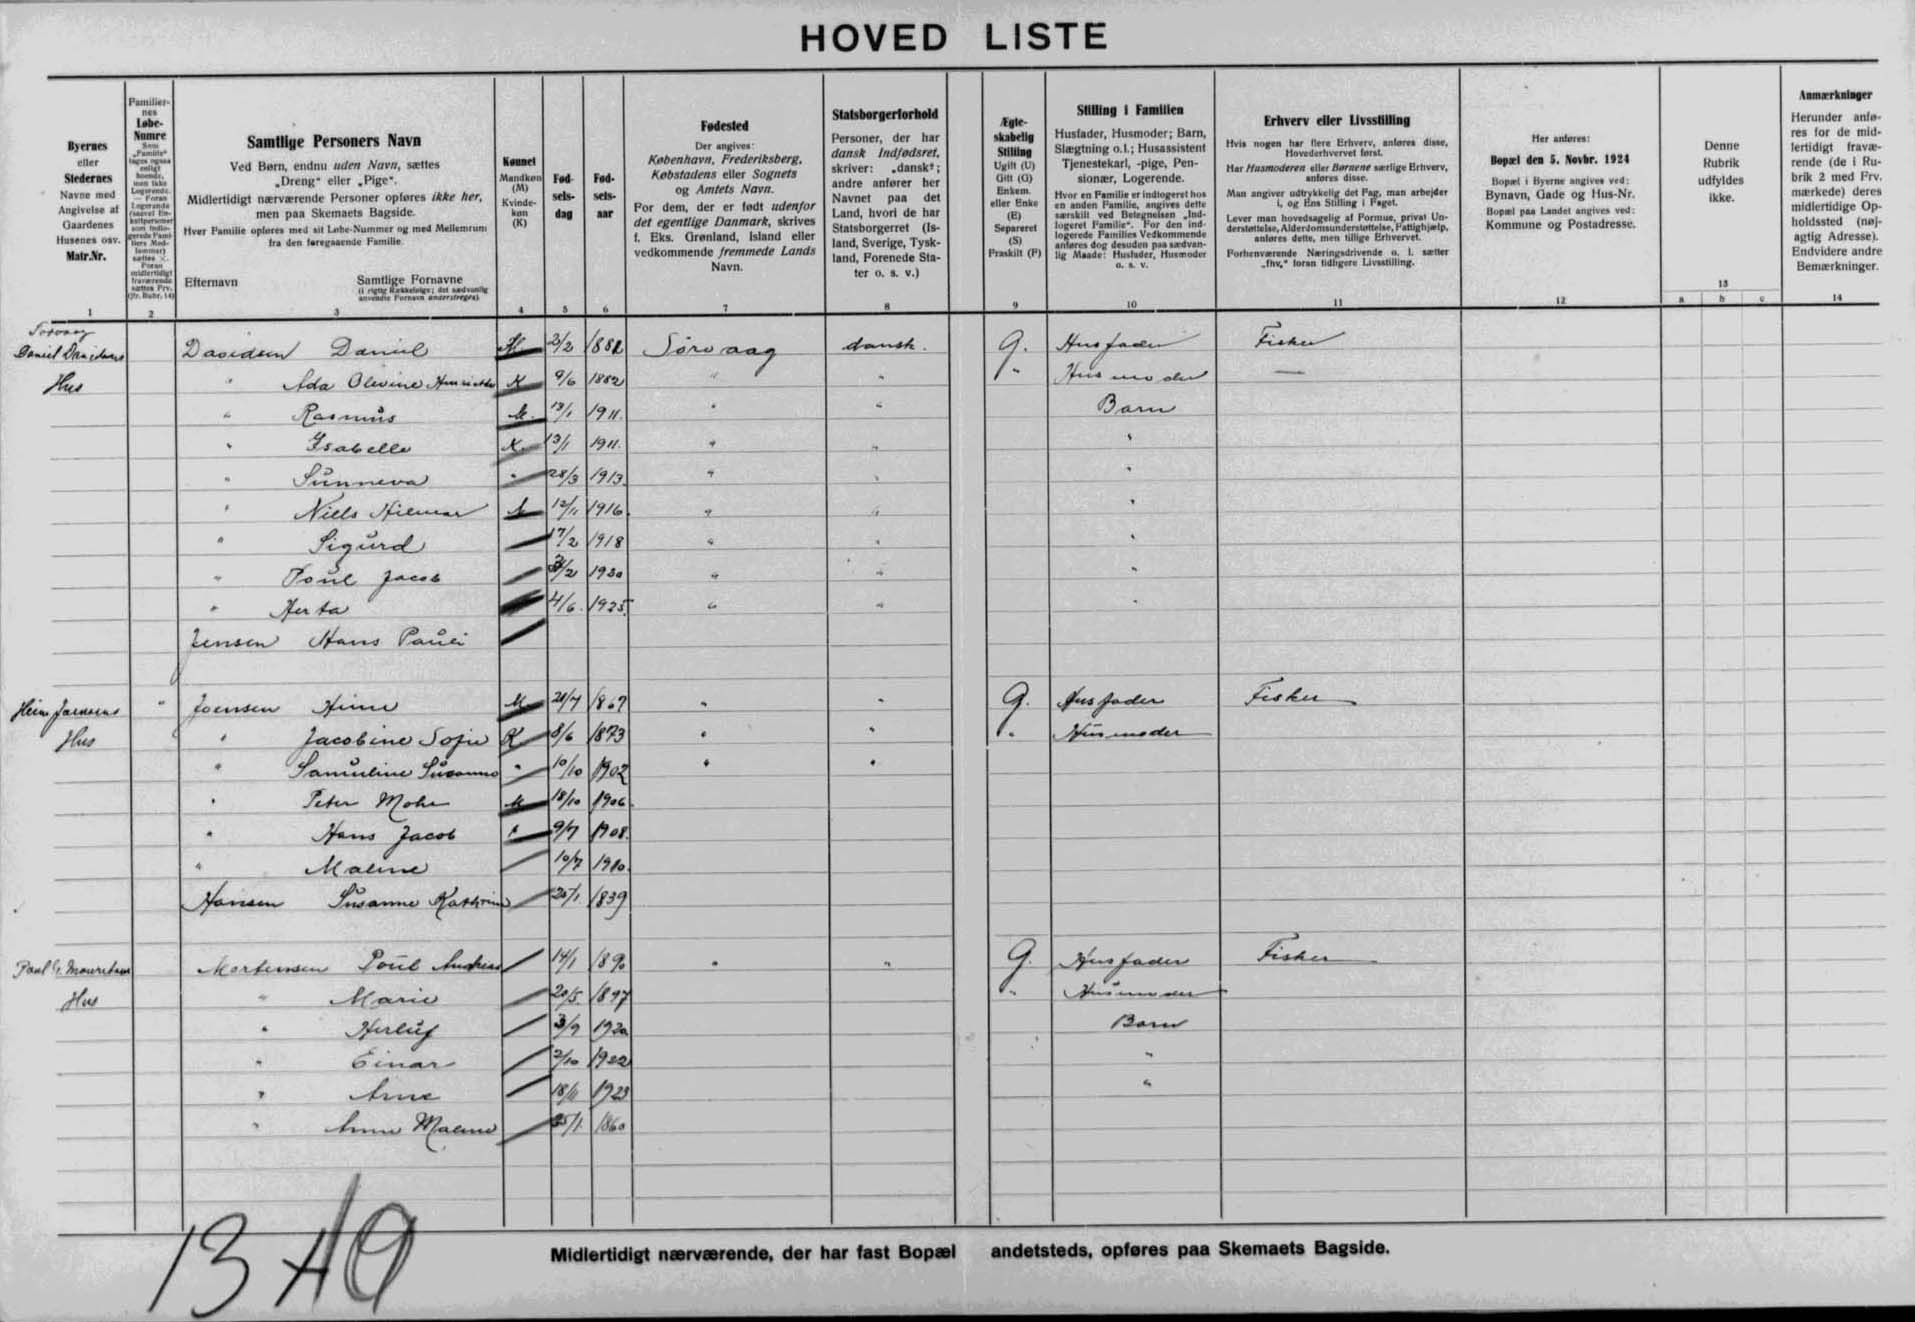 HOVED LISTE
Byernes
eller
Stedernes
Navne med
Angivelse af
Gaardenes
Husenes osv.
Matr.Nr.
1
Familier-
nes
Løbe-
Numre
2
Samtlige Personers Navn
Ved Børn, endnu uden Navn, sættes
„Dreng“ eller „Pige“.
Midlertidigt nærværende Personer opføres ikke her,
men paa Skemaets Bagside.
Hver Familie opføres med sit Løbe-Nummer og med Mellemrum
fra den foregaaende Familie.
Efternavn Samtlige Fornavne
(i rigtig Rækkefølge; det sædvanlig
anvendte Fornavn understreges).
3
Kønnet
Mandkøn
(M)
Kvinde-
køn
(K)
4
Fød-
sels-
dag
5
Fød-
sels-
aar
6
Fødested
Der angives:
København, Frederiksberg,
Købstadens eller Sognets
og Amtets Navn.
For dem, der er født udenfor
det egentlige Danmark, skrives
f. Eks. Grønland, Island eller
vedkommende fremmede Lands
Navn.
7
Statsborgerforhold
Personer, der har
dansk Indfødsret,
skriver: „dansk“;
andre anfører her
Navnet paa det
Land, hvori de har
Statsborgerret (Is-
land, Sverige, Tysk-
land, Forenede Sta-
ter o. s. v.)
8
Ægte-
skabelig
Stilling
Ugift (U)
Gift (G)
Enkem.
eller Enke
(E)
Separeret
(S)
Fraskilt (F)
9
Stilling i Familien
Husfader, Husmoder; Barn,
Slægtning o.l.; Husassistent
Tjenestekarl, -pige, Pen-
sionær, Logerende.
Hvor en Familie er indlogeret hos
en anden Familie, angives dette
særskilt ved Betegnelsen „Ind-
logeret Familie“. For den ind-
logerede Families Vedkommende
anføres dog desuden paa sædvan-
lig Maade: Husfader, Husmoder
o. s. v.
10
Erhverv eller Livsstilling
Hvis nogen har flere Erhverv, anføres disse,
Hovederhvervet først.
Har Husmoderen eller Børnene særlige Erhverv,
anføres disse.
Man angiver udtrykkelig det Fag, man arbejder
i, og Ens Stilling i Faget.
Lever man hovedsagelig af Formue, privat Un-
derstøttelse, Alderdomsunderstøttelse, Fattighjælp,
anføres dette, men tillige Erhvervet.
Forhenværende Næringsdrivende o. l. sætter
„fhv.“ foran tidligere Livsstilling.
11
Her anføres:
Bopæl den 5. Novbr. 1924
Bopæl i Byerne angives ved:
Bynavn, Gade og Hus-Nr.
Bopæl paa Landet angives ved:
Kommune og Postadresse.
12
Denne
Rubrik
udfyldes
ikke.
13
a b c
Anmærkninger
Herunder anfø-
res for de mid-
lertidigt fravæ-
rende (de i Ru-
brik 2 med Frv.
mærkede) deres
midlertidige Op-
holdssted (nøj-
agtig Adresse).
Endvidere andre
Bemærkninger.
14
Daniel Davidsens Davidsen Daniel M 2/2 1882 Sørvaag dansk. G. Husfader Fisker
Hus " Ada Olevine Henriette K 9/6 1882 " " " Husmoder —
" Rasmus M. 13/1 1911. " " Barn
" Isabella K. 13/1 1911. " " "
" Sunneva " 28/3 1913. " " "
" Niels Hilmar M 12/11 1916. " " "
" Sigurd 17/2 1918 " " "
" Poul Jacob /2 1920 " " "
" Herta 4/6. 1925. " " "
Jensen Hans Pauli
Heine Joensens " Joensen Heine M 21/7 1867 " " G. Husfader Fisker
Hus " Jacobine Sofie K 8/6 1873 " " " Husmoder
" Samuline Susanne " 10/10 1902 " "
" Peter Mohr M 18/10 1906.
" Hans Jacob " 9/7 1908.
" Maline 10/7 1910.
Hansen Susanne Kathrine 20/1 1839
Poul Mortensen Poul Andreas 14/1 1890 " " G. Husfader Fisker
Hus " Marie 20/5. 1897 " Husmoder
" Herluf 3/9 1920 Barn
" Einar 2/10 1922 "
" Arne 18/11 1923 "
" Anna Maline 25/1. 1860
13
Midlertidigt nærværende, der har fast Bopæl andetsteds, opføres paa Skemaets Bagside.